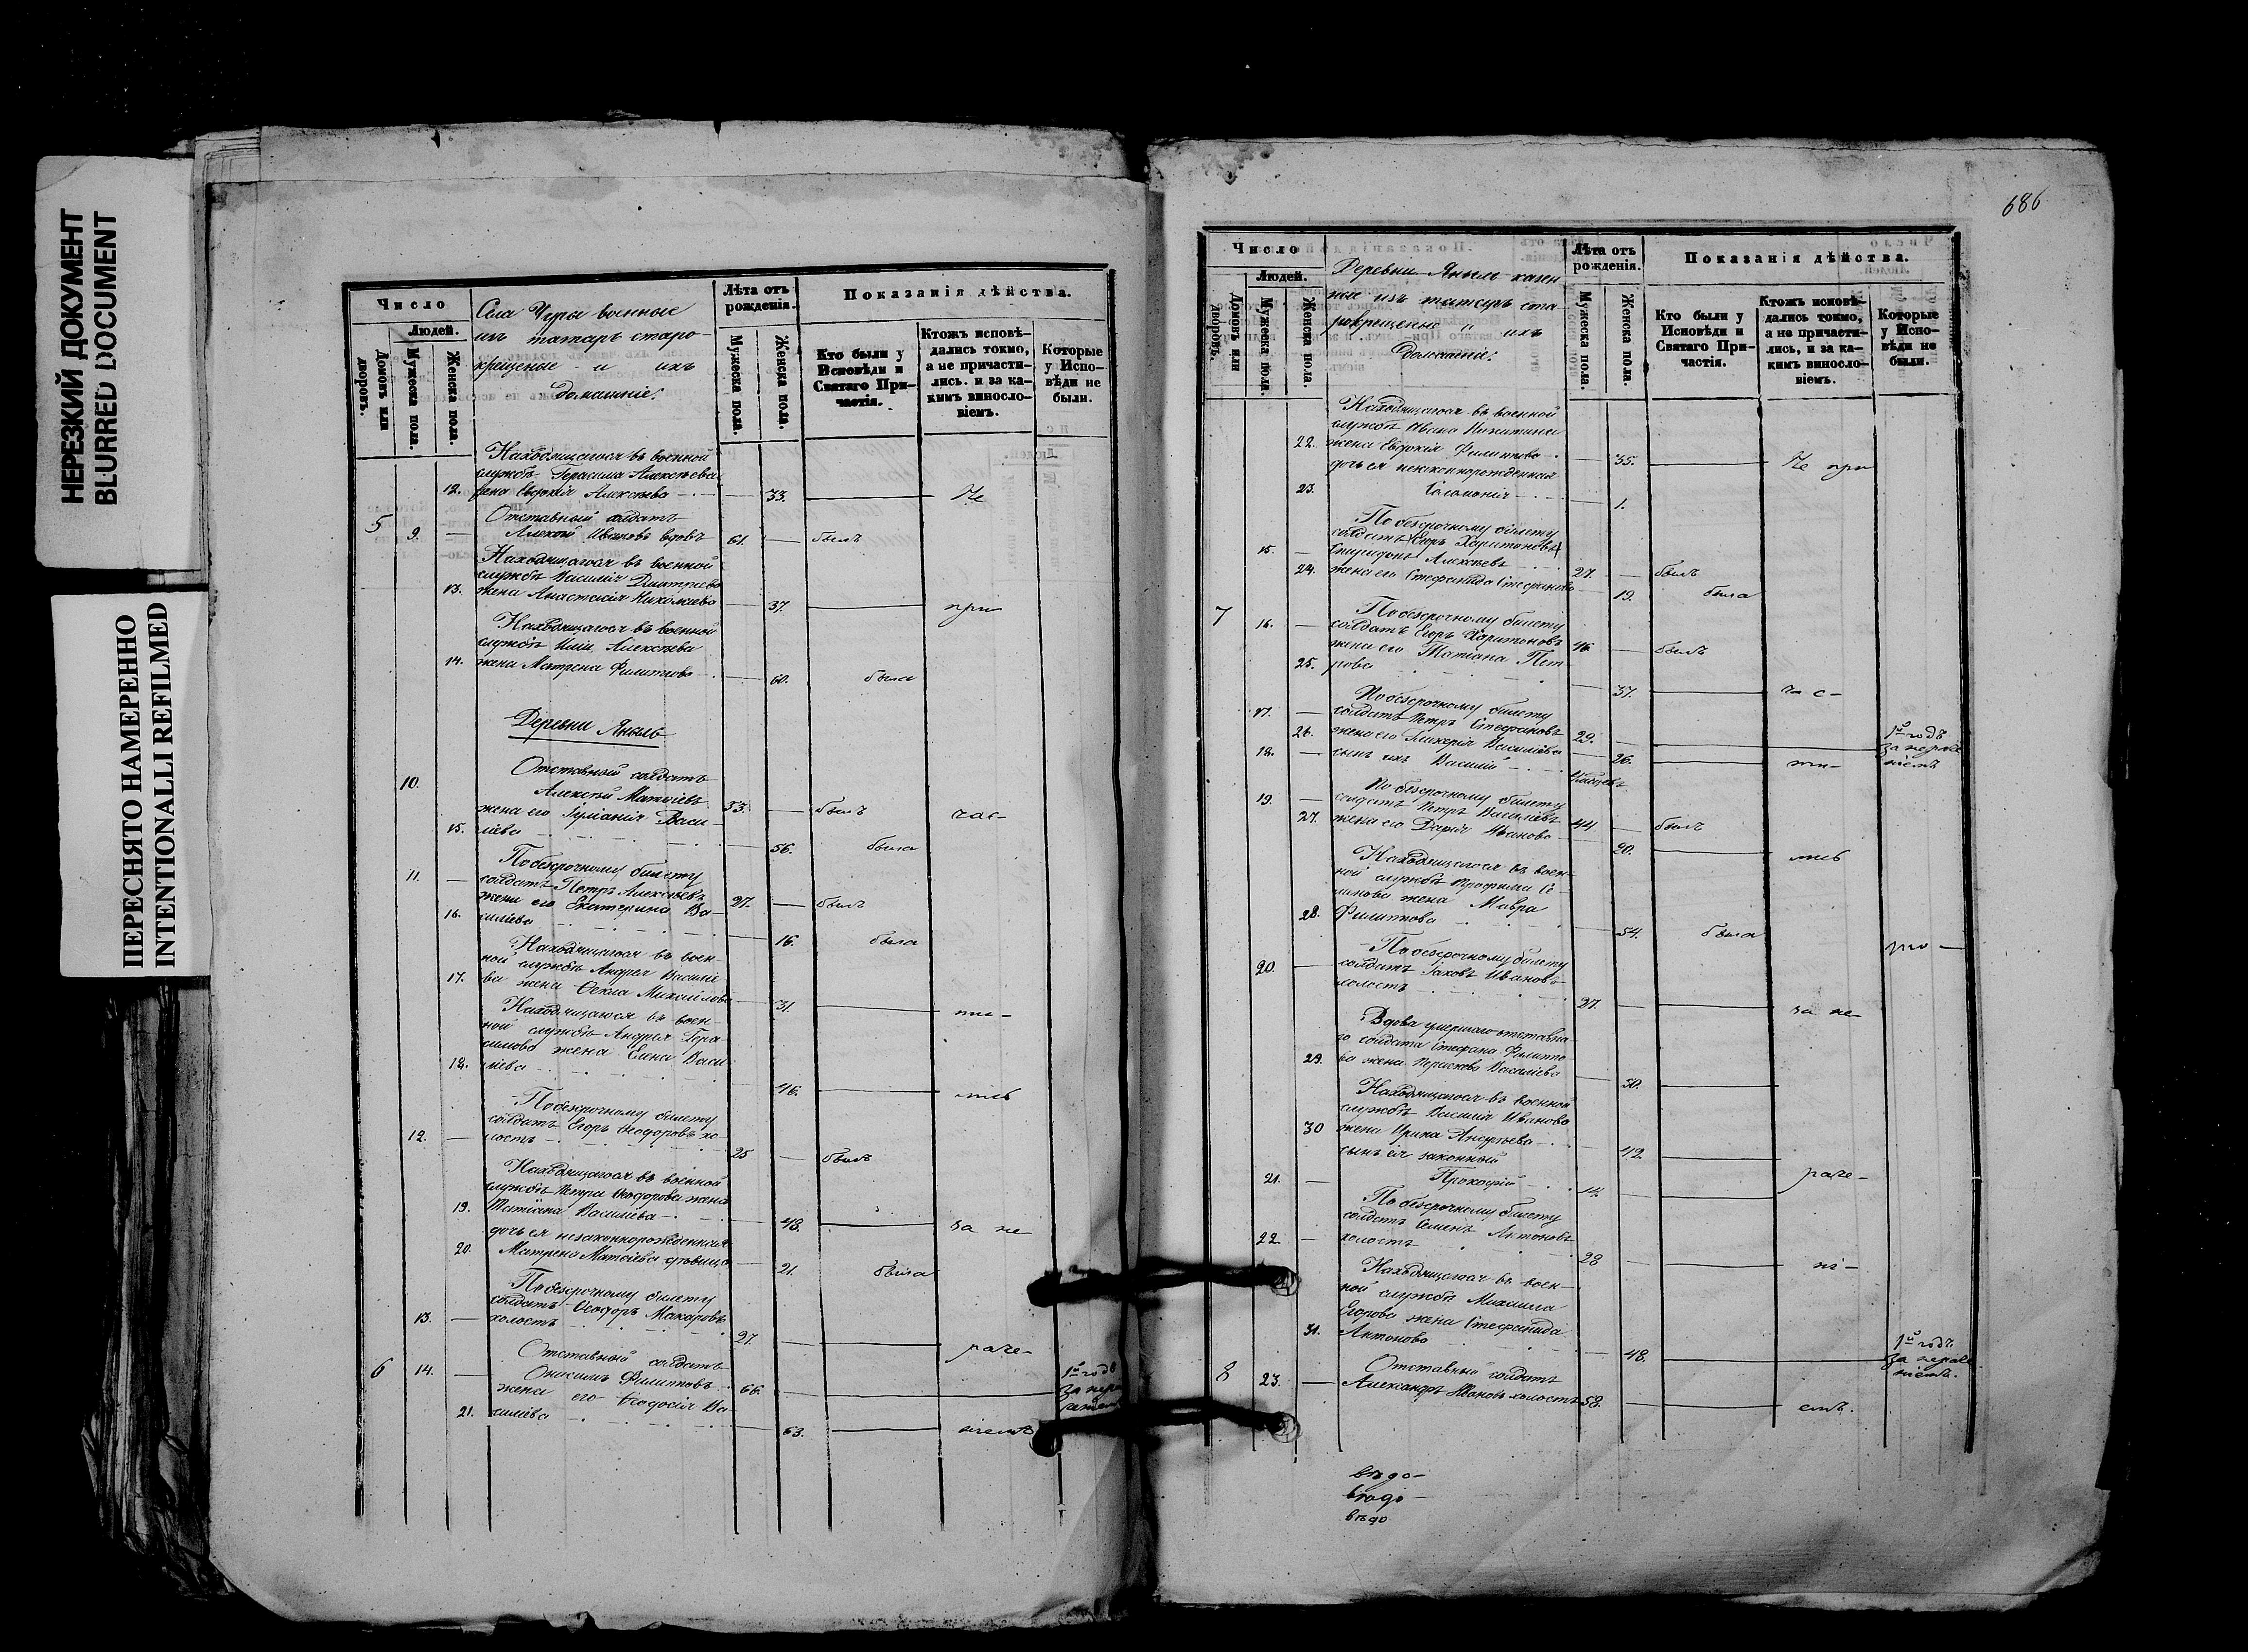 НЕРЕЗКИЙ ДОКУМЕНТ
BLURRED DOCUMENT
ПЕРЕСНЯТО НАМЕРЕННО
INTENTIONALLI REFILMED
Число
Людей.
Домовъ или дворовъ.
Мужеска пола.
Женска пола.
Села Чуры военные
изъ татаръ старо-
крещеные и ихъ
домашніе.
Лѣта отъ рожденія.
Мужеска пола.
Женска пола.
Показанія дѣйства.
Кто были у Исповѣди и Святаго Причастія.
Ктожъ исповѣдались токмо, а не причастились, и за какимъ винословіемъ.
Которые у Исповѣди не были.
Находящагося въ военной
службѣ Герасима Алексѣева
12. жена Евдокія Алексѣева 33. Не
Отставный солдатъ
5 9. — Алексѣй Ивановъ вдовъ 61. — былъ
Находящагося въ военной
службѣ Василія Дмитріева
13. жена Анастасія Николаева — 37. при
Находящагося въ военной
службѣ Иліи Алексѣева
14. жена Матрена Филиппова — 60. была
Деревни Яныль
Отставный солдатъ
10. Алексѣй Матвіевъ 53. — былъ час-
жена его Іуліанія Васи-
15. ліева 56. была
По безсрочному билету
11. — солдатъ Петръ Алексѣевъ 27. — былъ
жена его Екатерина Ва-
16. силіева 16. была
Находящагося въ воен-
ной службѣ Андрея Василіе
17. ва жена Ѳекла Михайлова 31. ти-
Находящагося въ воен-
ной службѣ Андрея Гера-
симова жена Елена Васи
18. ліева 46. лись
По безсрочному билету
солдатъ Егоръ Ѳеодоровъ хо-
12. — лостъ 25 — былъ
Находящагося въ военной
службѣ Петра Ѳеодорова жена
19. Татіана Василіева 48. за не
дочь ея незаконнорожденная
20. Матрена Матвіева дѣвица 21. была
По безсрочному билету
солдатъ Ѳеодоръ Макаровъ
13. — холостъ 27. — раче-
Отставный солдатъ
6 14. — Онисимъ Филипповъ 66. 1й годъ
жена его Ѳеодосія Ва-
21. силіева 63. ніемъ
686
Число
Людей.
Домовъ или дворовъ.
Мужеска пола.
Женска пола.
Деревни Яныль
изъ татаръ ста-
рокрещеные и ихъ
домашніе.
Лѣта отъ рожденія.
Мужеска пола.
Женска пола.
Показанія дѣйства.
Кто были у Исповѣди и Святаго Причастія.
Ктожъ исповѣдались токмо, а не причастились, и за какимъ винословіемъ.
Которые у Исповѣди не были.
Находящагося въ военной
службѣ Ивана Никитина
22. жена Евдокія Филиппова — 35. Не при
дочь ея незаконнорожденная
23. Саломонія — 1.
По безсрочному билету
солдатъ Егоръ Харитоновъ
15. — Спиридонъ Алексѣевъ 27. — былъ
24. жена его Стефанида Стефанова 19. была
По безсрочному билету
7 16. — солдатъ Егоръ Харитоновъ 46. — былъ
жена его Татіана Пет
25. рова 37. час-
По безсрочному билету
17. — солдатъ Петръ Стефановъ 29. — 1й годъ
26. жена его Гликерія Василіева — 26. ти-
18. — сынъ ихъ Василій
По безсрочному билету
19. — солдатъ Петръ Василіевъ 44. — былъ
27. жена его Дарія Иванова 20. лись
Находящагося въ воен-
ной службѣ Трофима Се
менова жена Мавра
28. Филиппова 54. была
По безсрочному билету
20. — солдатъ Іаковъ Ивановъ
холостъ 27. — за не-
Вдова умершаго отставна-
го солдата Стефана Филиппо-
29. ва жена Параскева Василіева 50.
Находящагося въ военной
службѣ Василія Иванова
30 жена Ирина Андреева 42
сынъ ея законный
21. — Прокофій 14. раче-
По безсрочному билету
солдатъ Семенъ Антоновъ
22 — холостъ 28 — ні-
Находящагося въ воен-
ной службѣ Михаила
Егорова жена Стефанида
31. Антонова 48. 1й годъ
Отставный солдатъ
8 23. — Александръ Ивановъ холостъ 58. — емъ.